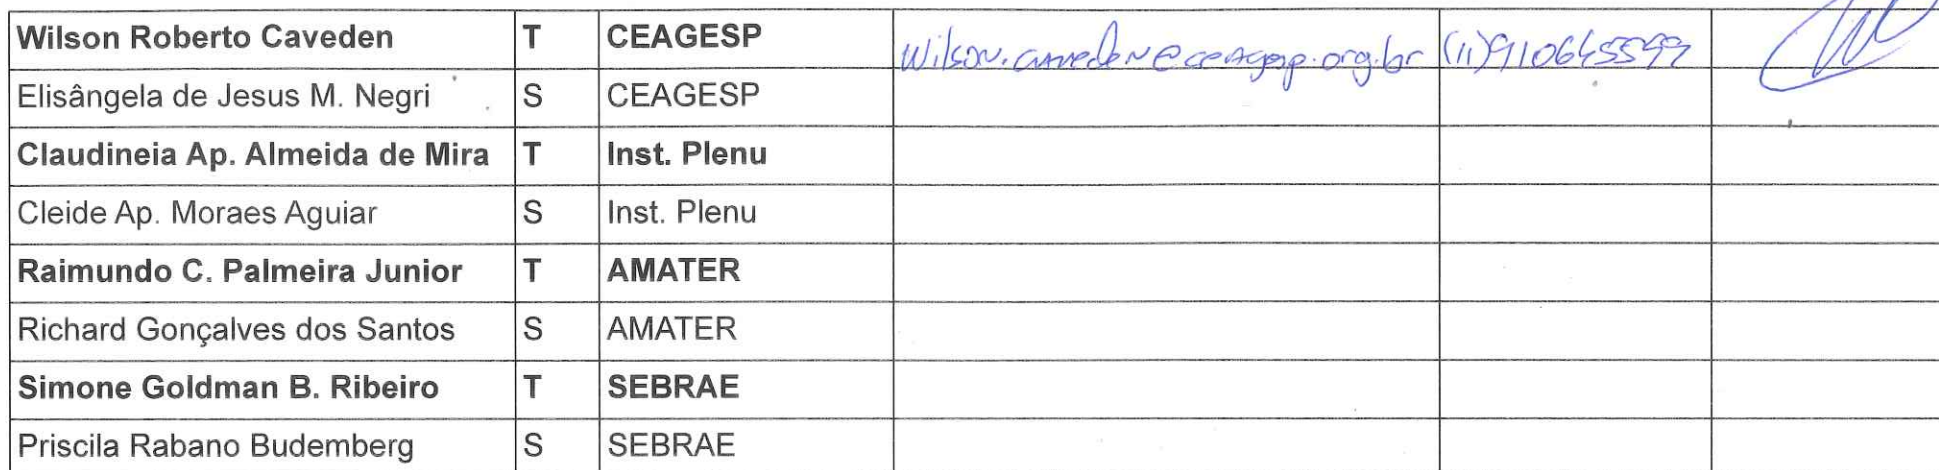 Wilson Roberto Caveden T CEAGESP Wilson.caveden@ceagesp.org.br (11)910645599
Elisângela de Jesus M. Negri S CEAGESP
Claudineia Ap. Almeida de Mira T Inst. Plenu
Cleide Ap. Moraes Aguiar S Inst. Plenu
Raimundo C. Palmeira Junior T AMATER
Richard Gonçalves dos Santos S AMATER
Simone Goldman B. Ribeiro T SEBRAE
Priscila Rabano Budemberg S SEBRAE